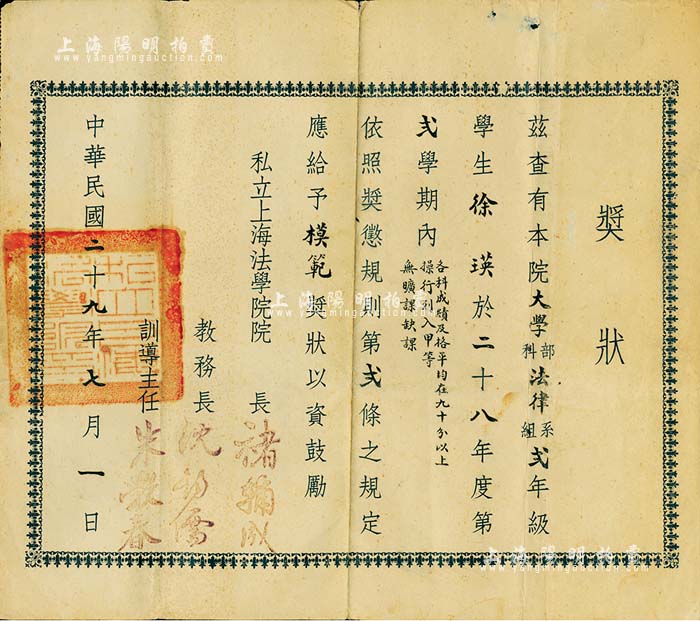 上海陽明拍賣
www.yangmingauction.com
獎狀
茲查有本院大學部科法律系組弍年級
學生徐瑛於二十八年度第
弍學期內各科成績及格平均在九十分以上
操行列入甲等
無曠課缺課
依照獎懲規則第弍條之規定
應給予模範獎狀以資鼓勵
私立上海法學院院長褚輔成
教務長沈鈞儒
訓導主任朱
中華民國二十九年七月一日
上海陽明拍賣
www.yangmingauction.com
上海陽明拍賣
www.yangmingauction.com